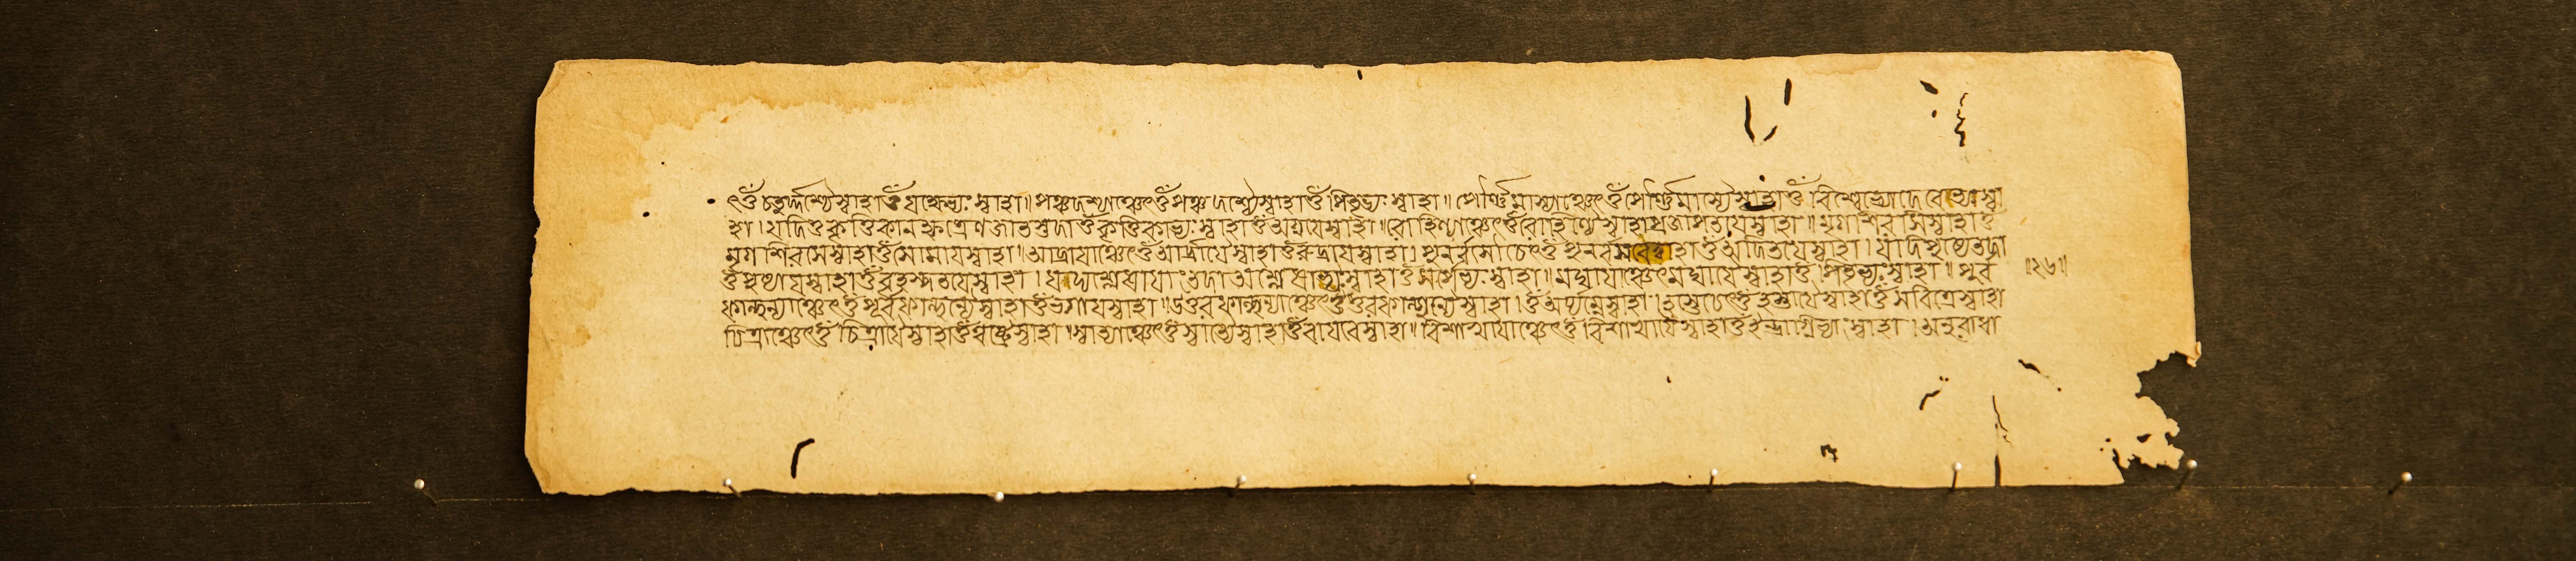 ৎওঁচতুর্দ্দশ্যৈস্বাহাওঁযক্ষেভ্যঃস্বাহা॥পঞ্চদশ্যাঞ্চেৎওঁপঞ্চদশ্যৈস্বাহাওঁপিতৃভ্যঃস্বাহা॥পৌর্ণ্ণমাস্যাঞ্চেৎওঁপৌর্ণ্ণমাস্যৈস্বাহাওঁবিশ্বেভ্যোদেবেভ্যঃস্বা
হা।যদিতুকৃত্তিকানক্ষত্রেণজাতস্তদাওঁকৃত্তিকাভ্যঃস্বাহাওঁঅগ্নয়েস্বাহা॥রোহিণ্যাঞ্চেৎওঁরোহিণ্যৈস্বাহাপ্রজাপতয়েস্বাহা॥মৃগশিরসিস্বাহাওঁ
মৃগশিরসেস্বাহাওঁসোমায়স্বাহা॥আর্দ্রায়াঞ্চেৎওঁআর্দ্রায়ৈস্বাহাওঁরুদ্রায়স্বাহা।পুনর্বসৌচেৎওঁপুনর্বসবেস্বাহাওঁঅদিতয়েস্বাহা।যদিপুষ্যেতদা
ওঁপুষ্যায়স্বাহাওঁবৃহস্পতয়েস্বাহা।অশ্লেষাভ্যঃস্বাহাওঁসর্পেভ্যঃস্বাহা॥মঘায়াঞ্চেৎমঘায়ৈস্বাহাওঁপিতৃভ্যঃস্বাহা॥পূর্ব ॥২৭॥
ফাল্গুন্যাঞ্চেৎওঁপূর্বফাল্গুন্যৈস্বাহাওঁভগায়স্বাহা॥উত্তরফাল্গুন্যাঞ্চেৎওঁউত্তরফাল্গুন্যৈস্বাহা।ওঁঅর্য্যম্নেস্বাহা।হস্তেচেৎওঁহস্তায়ৈস্বাহাওঁসবিত্রেস্বাহা
চিত্রাঞ্চেৎওঁচিত্রায়ৈস্বাহাওঁত্বষ্ট্রেস্বাহা।স্বাত্যাঞ্চেৎওঁস্বাত্যৈস্বাহাওঁবায়বেস্বাহা॥বিশাখায়াঞ্চেৎওঁবিশাখায়ৈস্বাহাওঁইন্দ্রাগ্নিভ্যাংস্বাহা।অনুরাধা